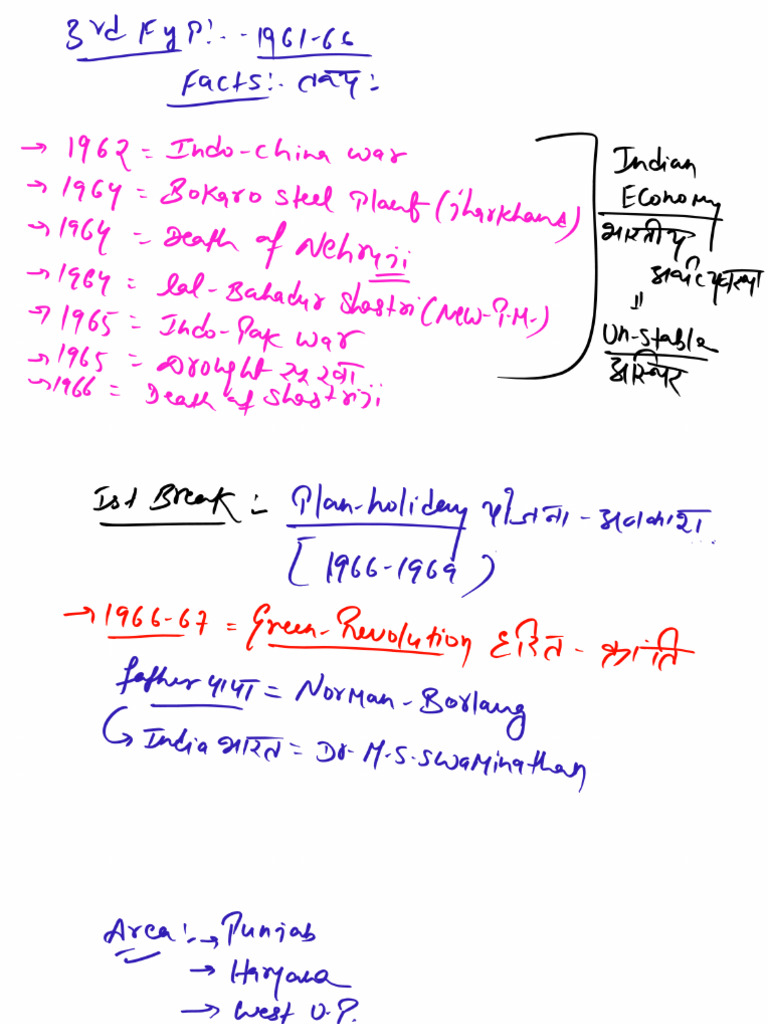 3rd FYP:- 1961-66
Facts:- तथ्य:
→ 1962 = Indo-China war
→ 1964 = Bokaro Steel Plant (Jharkhand)
→ 1964 = Death of Nehruji
→ 1964 = Lal-Bahadur Shastri (New-P.M.)
→ 1965 = Indo-Pak war
→ 1965 = Drought सूखा
→ 1966 = Death of Shastriji
Indian
Economy
भारतीय
अर्थव्यवस्था
=
Un-stable
अस्थिर
Ist Break :- Plan-holiday योजना - अवकाश
[1966-1969)
→ 1966-67 = Green-Revolution हरित - क्रांति
father पापा = Norman-Borlaug
↳ India भारत = Dr. M.S. Swaminathan
Area:- → Punjab
→ Haryana
→ West U.P.